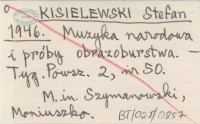 o KISIELEWSKI Stefan
1946. Muzyka narodowa
i próby obrazoburstwa. –
Tyg. Powsz. 2, nr 50.
M.in. Szymanowski,
Moniuszko.
BT/027/0857